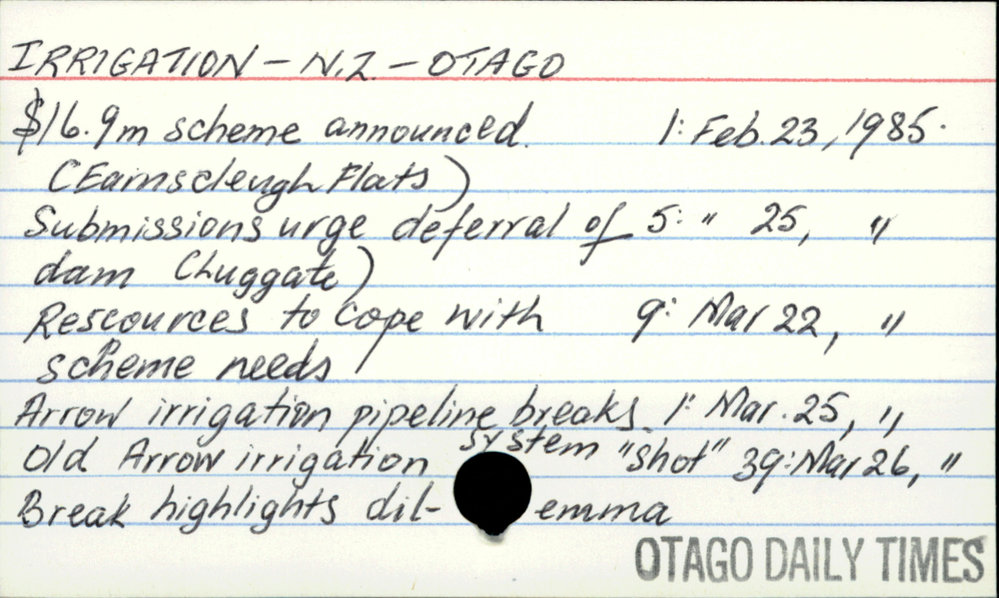 IRRIGATION - N.Z. - OTAGO
$16.9m scheme announced. 1: Feb. 23, 1985.
(Earnscleugh Flats)
Submissions urge deferral of 5: " 25, "
dam (Luggate)
Rescources to cope with 9: Mar 22, "
scheme needs
Arrow irrigation pipeline breaks. 1: Mar. 25, "
Old Arrow irrigation system "shot" 39: Mar 26, "
Break highlights dil- emma
OTAGO DAILY TIMES